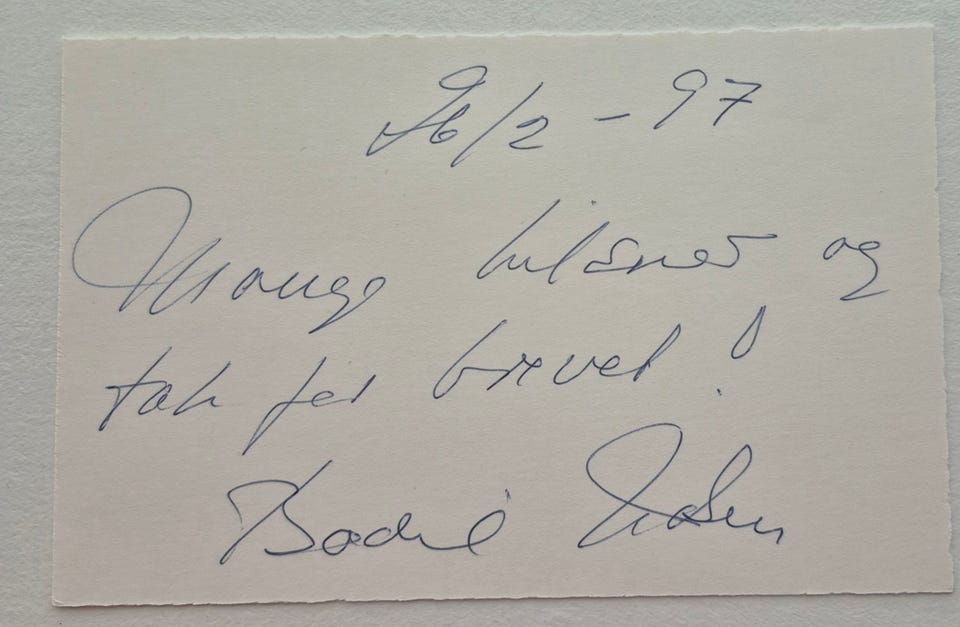 26/2 - 97
Mange hilsner og
tak for brevet!
Bodil Udsen